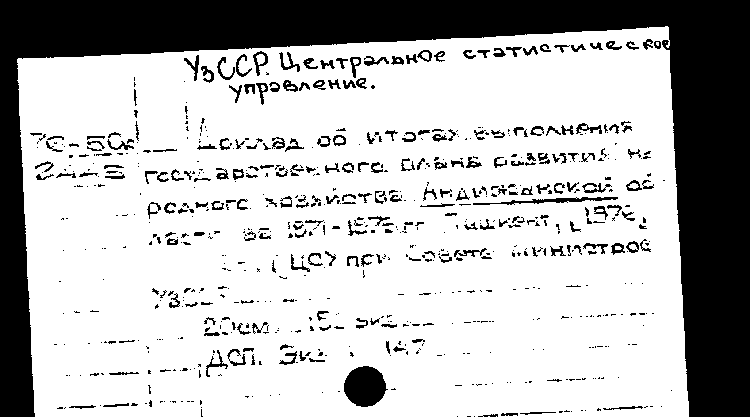 УзССР. Центральное статистическое
управление.
Доклад об итогах выполнения
государственного плана развития на
родного хозяйства Андижанской об
ласти за 1971-1975 гг Ташкент, [1976]
(ЦСУ при Совете Министров
УзССР
20см. 15 экз
ДСП. Экз 147